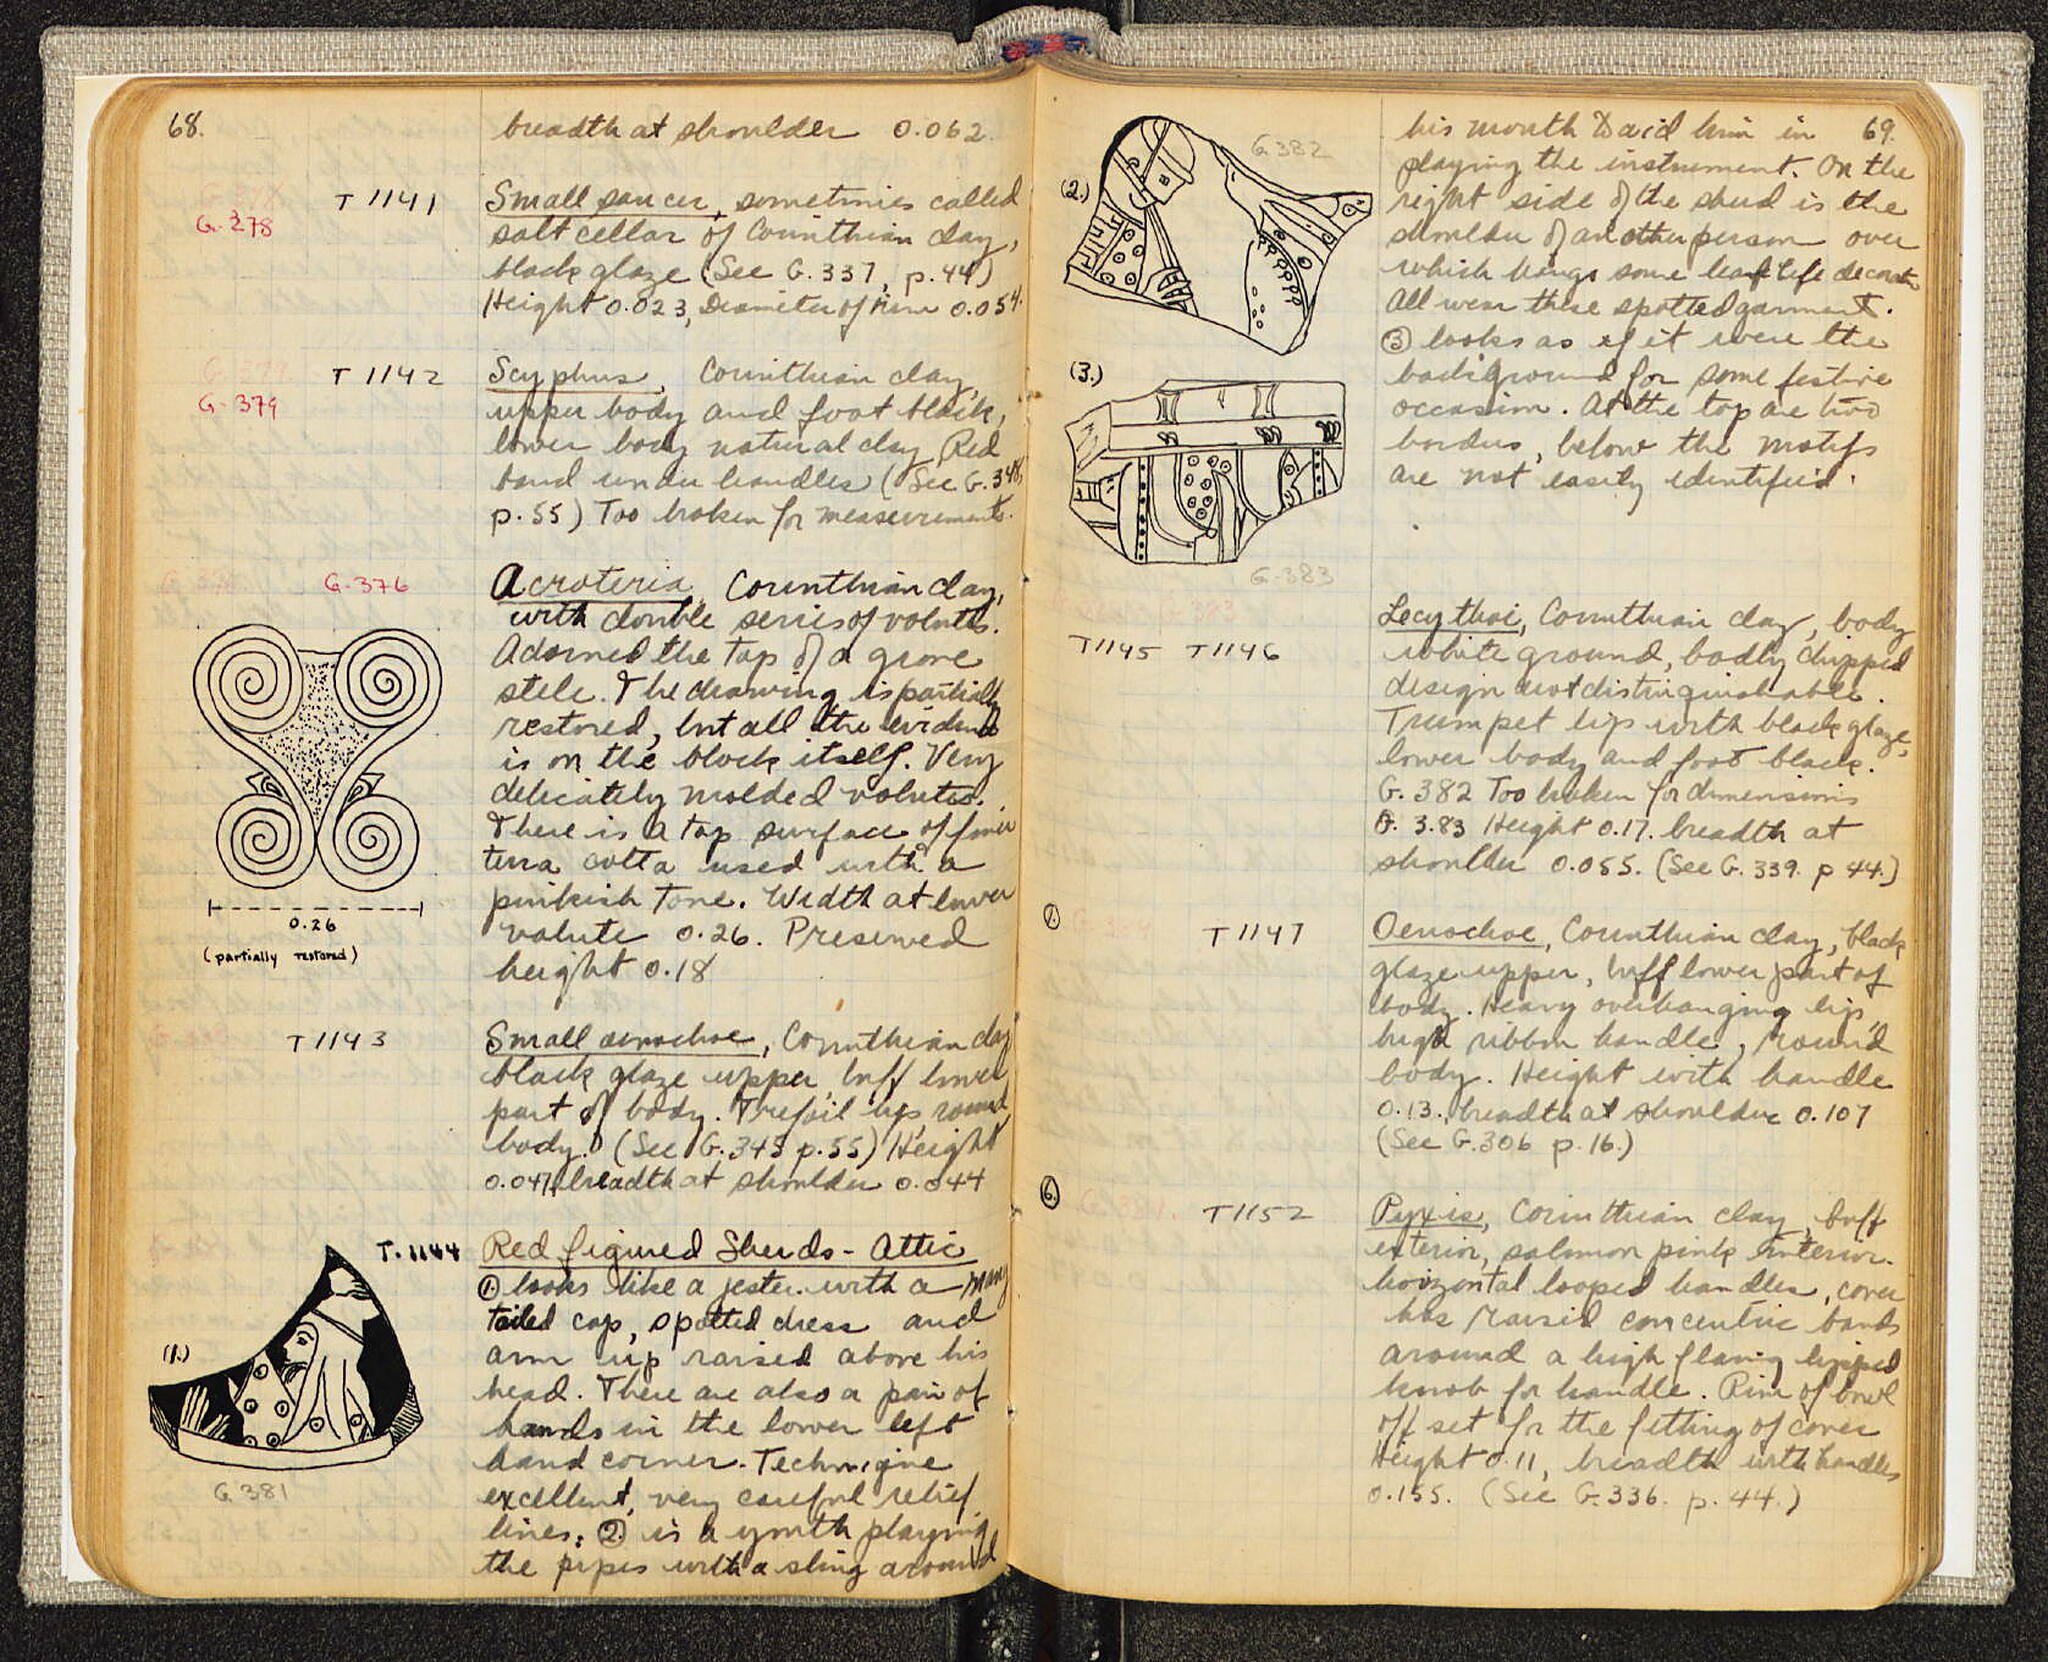 68.
breadth at shoulder 0.062
G-278
T 1141
Small saucer, sometimes called
salt cellar of Corinthian clay,
black glaze (See G. 337, p. 44)
Height 0.023, Diameter of rim 0.054.
G-379
T 1142
Scyphus, Corinthian clay,
upper body and foot black,
lower body natural clay. Red
band under handles (See G. 348,
p. 55) Too broken for measurements.
G-376
Acroteria, Corinthian clay,
with double series of volutes.
Adorned the top of a grave
stele. The drawing is partially
restored, but all the evidence
is on the block itself. Very
delicately molded volutes.
There is a top surface of finer
terra cotta used with a
pinkish tone. Width at lower
volute 0.26. Preserved
height 0.18
0.26
(partially restored)
T 1143
Small oenochoe, Corinthian clay
black glaze upper, buff lower
part of body. Trefoil lip, round
body. (See G. 345 p. 55) Height
0.047, breadth at shoulder 0.044
T. 1144
Red figured Sherds - Attic
① looks like a jester with a many
tailed cap, spotted dress and
arm up raised above his
head. There are also a pair of
hands in the lower left
hand corner. Technique
excellent, very careful relief
lines. ② is a youth playing
the pipes with a sling around
(1.)
G 381
69.
his mouth to aid him in
playing the instrument. On the
right side of the sherd is the
shoulder of another person over
which hangs some leaf like
All wear these spotted garments.
③ looks as if it were the
background for some festive
occasion. At the top are two
borders, below the motifs
are not easily identified.
(2.)
G 382
(3.)
G-383
T1145 T1146
Lecythoi, Corinthian clay, body
white ground, badly chipped
design not distinguishable.
Trumpet lip with black glaze,
lower body and foot black.
G. 382 Too broken for dimensions
G. 3.83 Height 0.17. breadth at
shoulder 0.055. (See G. 339. p 44.)
T 1147
Oenochoe, Corinthian clay, black
glaze upper, buff lower part of
body. Heavy overhanging lip,
high ribbon handle, round
body. Height with handle
0.13, breadth at shoulder 0.107
(See G. 306 p. 16.)
6.
T1152
Pyxis, Corinthian clay, buff
exterior, salmon pink interior.
horizontal looped handles, cover
has raised concentric bands
around a high flaring lipped
knob for handle. Rim of bowl
off set for the fitting of cover
Height 0.11, breadth with handles
0.155. (See G. 336. p. 44.)